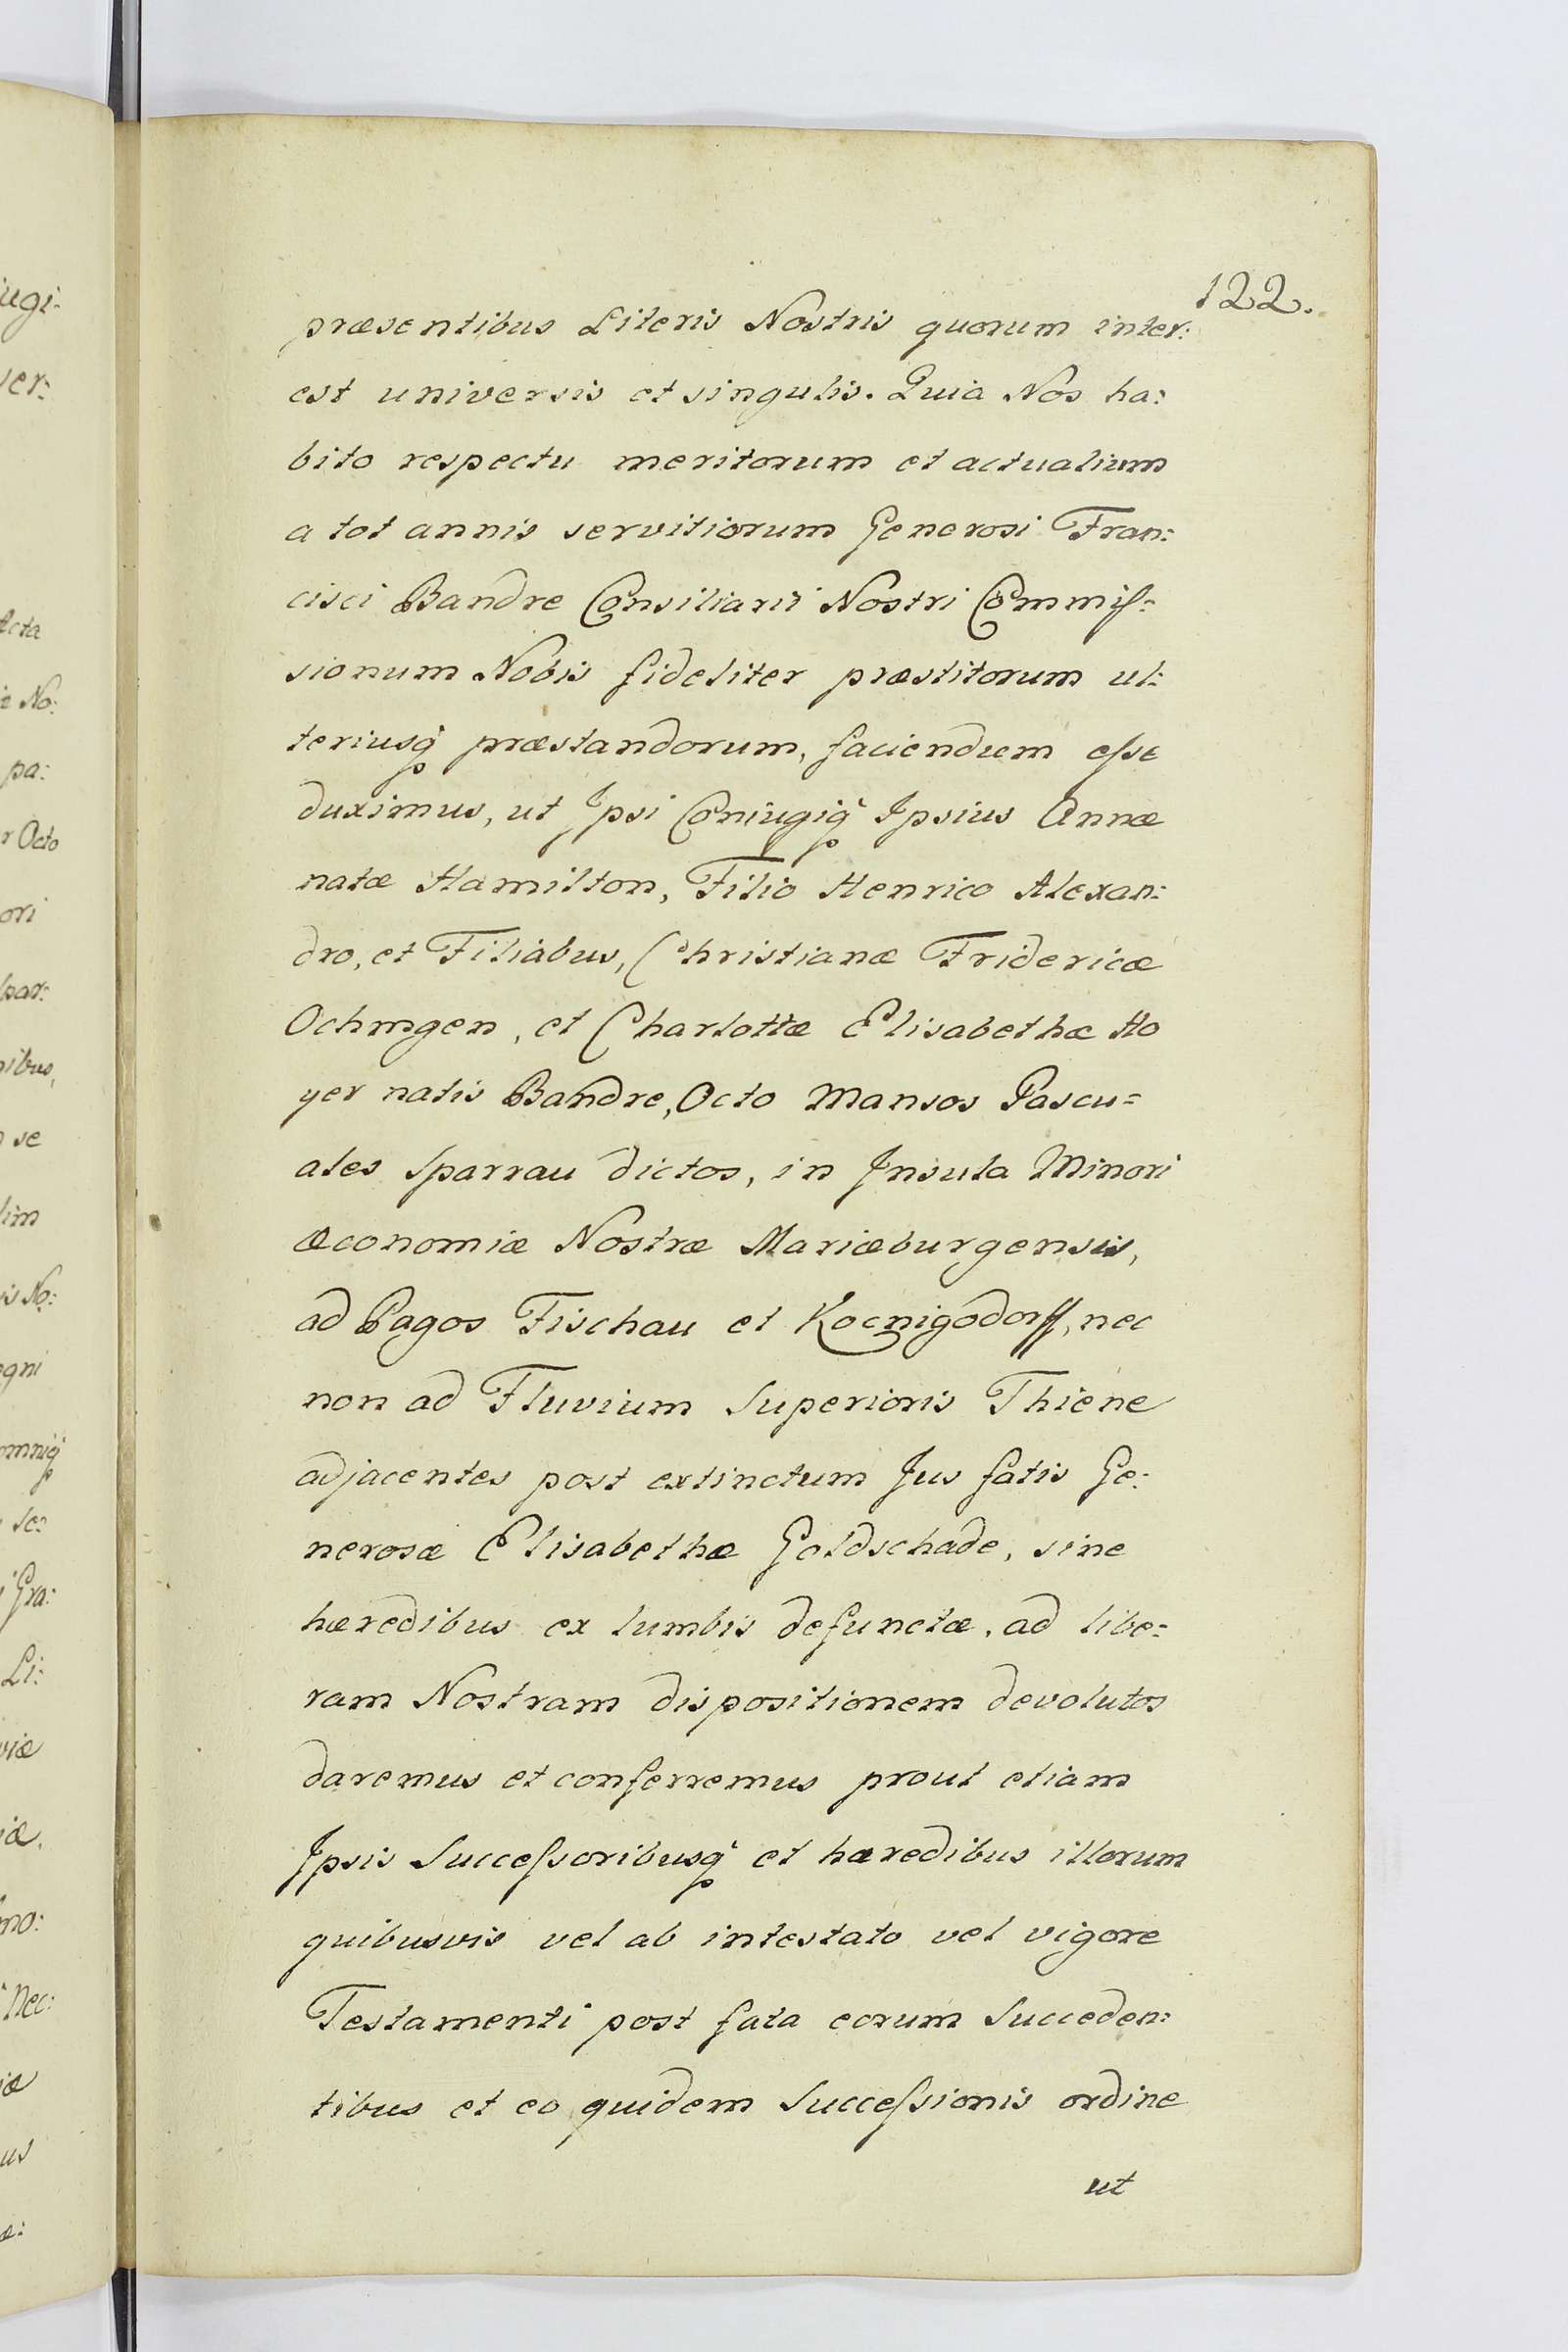 122.
præsentibus Literis Nostris quorum inter:
est universis et singulis. Quia Nos ha:
bito respectu meritorum et actualium
a tot annis servitiorum Generosi Fran:
cisci Bandre Consiliarii Nostri Commiſ:
sionum Nobis fideliter præstitorum ul:
teriusq præstandorum, faciendum eſse
duximus, ut Ipsi Coniugiq Ipsius Annæ
natæ Hamilton, Filio Henrico Alexan:
dro, et Filiabus, Christianæ Fridericæ
Ochmgen, et Charlottæ Elisabethæ Ho
yer natis Bandre, Octo Mansos Pascu=
ales Sparrau dictos, in Insula Minori
Œconomiæ Nostræ Mariæburgensis,
ad Pagos Fischau et Koenigsdorff, nec
non ad Fluvium Superioris Thiene
adjacentes post extinctum Jus fatis Ge:
nerosæ Elisabethæ Goldschade, sine
hæredibus ex lumbis defunctæ, ad libe:
ram Nostram dispositionem devolutos
daremus et conferremus prout etiam
Ipsis Succeſsoribusq et hæredibus illorum
quibusvis vel ab intestato vel vigore
Testamenti post fata eorum Succeden:
tibus et eo quidem Succeſsionis ordine
ut